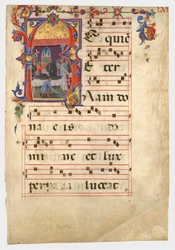 R E quie
E ter
nam do
na eis do
mine et lux
perpetua luceat